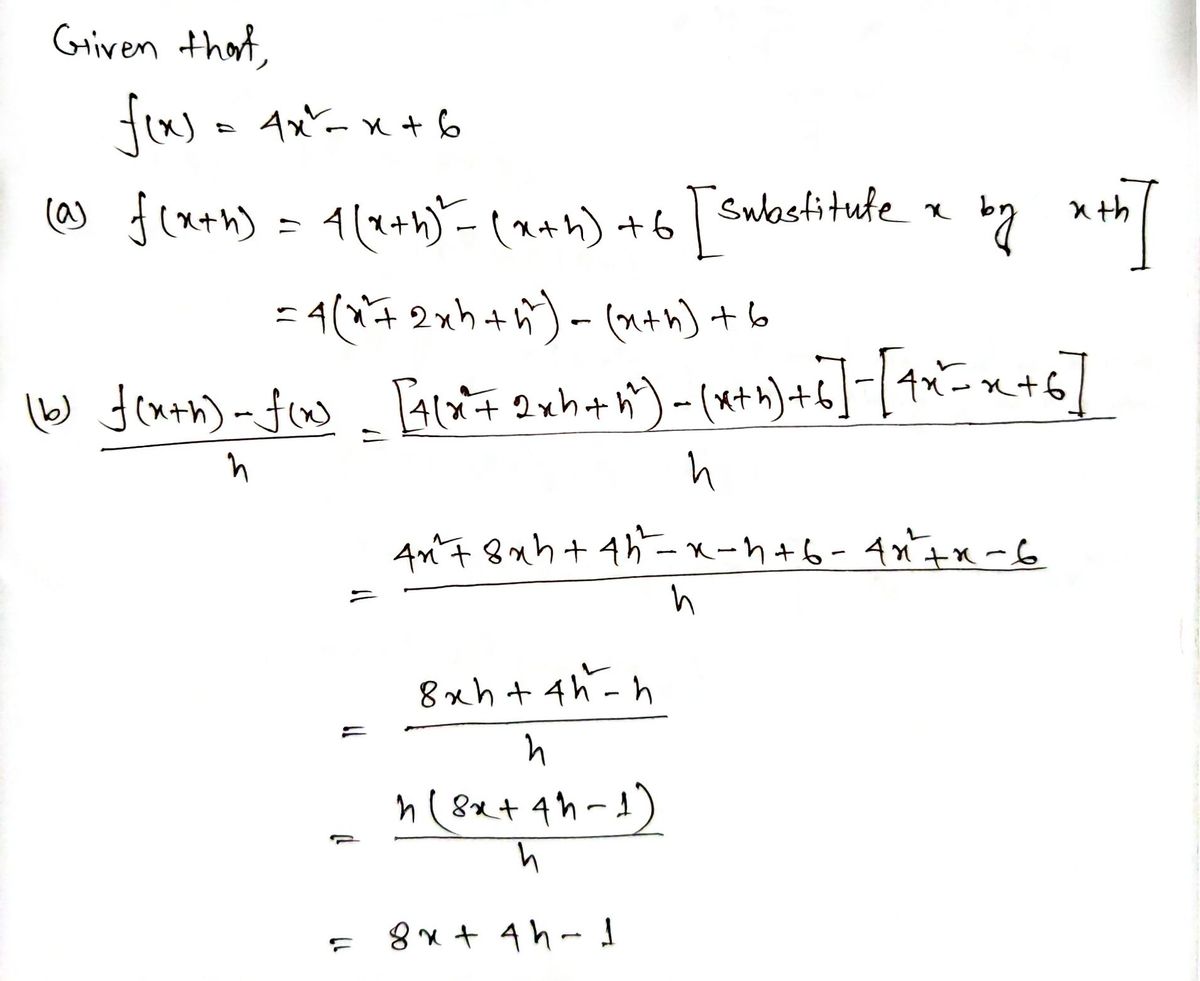 Given that,
f(x) = 4x² - x + 6
(a) f(x+h) = 4(x+h)² - (x+h) + 6 [substitute x by x+h]
= 4(x² + 2xh + h²) - (x+h) + 6
(b) f(x+h) - f(x) / h = [4(x² + 2xh + h²) - (x+h) + 6] - [4x² - x + 6] / h
= 4x² + 8xh + 4h² - x - h + 6 - 4x² + x - 6 / h
= 8xh + 4h² - h / h
= h(8x + 4h - 1) / h
= 8x + 4h - 1